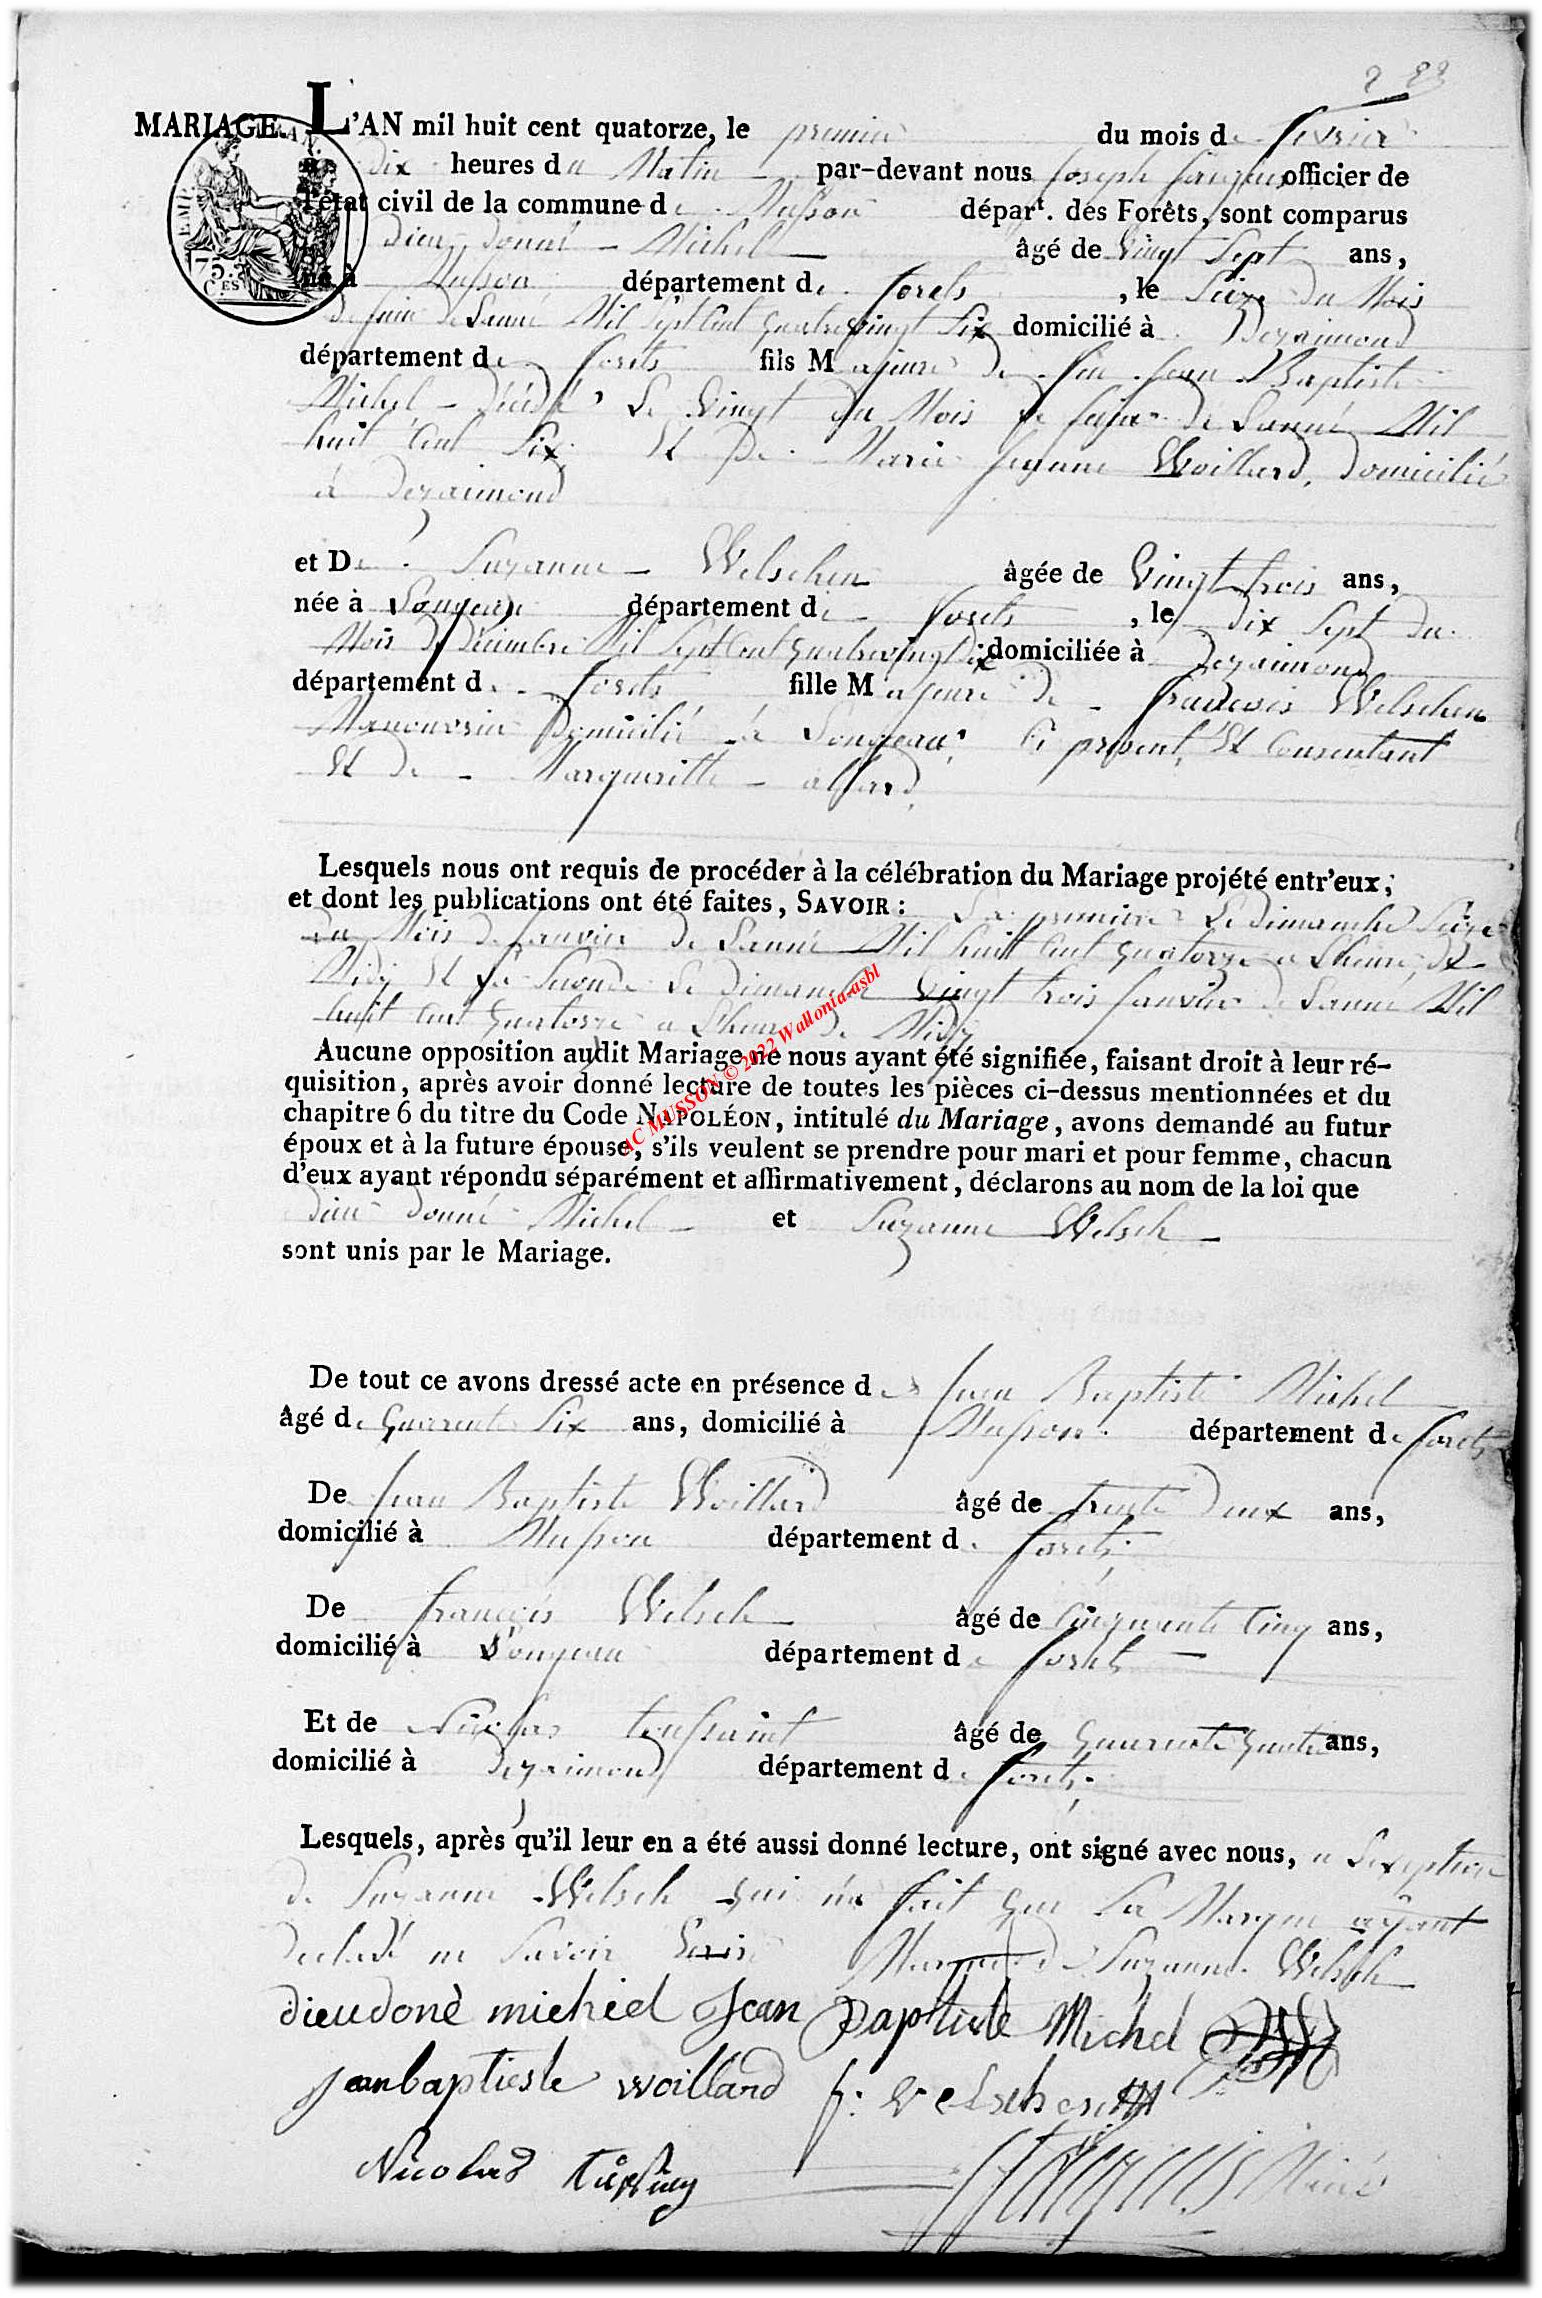 2 23
MARIAGE. L'AN mil huit cent quatorze, le premier du mois de fevrier
a dix heures du Matin par-devant nous Joseph officier de
l'état civil de la commune de Musson départ. des Forêts, sont comparus
dieu donné - Michel âgé de Vingt Sept ans,
né à Musson département de forets, le Seize du Mois
de Juin de Lanné Mil Sept Cent quatrevingt Six domicilié à Dezaimond
département de forets fils Majeure de feu Jean Baptiste
Michel - décédé Le Vingt du Mois de de Lanné Mil
huit Cent Six Et De Marie Jeanne Woillard, domicilié
à Dezaimond
et De Suzanne - Welschen âgée de Vingt trois ans,
née à Longeau département de forets, le dix Sept du
Mois de decembre Mil Sept Cent quatrevingt dix domiciliée à Dezaimond
département de forets fille Majeure de francois Welschen
Manouvrier Domicilié à Longeau, Ci present, Et Consentant
Et de - Margueritte - allard,
Lesquels nous ont requis de procéder à la célébration du Mariage projété entr'eux;
et dont les publications ont été faites, SAVOIR: La premiere Le dimanche Seize
du Mois de Janvier de Lanné Mil huit Cent quatorze a Lheure de
Midy Et La Seconde Le dimanche Vingt trois Janvier de Lanné Mil
huit Cent quatorze a Lheure de Midy
Aucune opposition audit Mariage ne nous ayant été signifiée, faisant droit à leur ré-
quisition, après avoir donné lecture de toutes les pièces ci-dessus mentionnées et du
chapitre 6 du titre du Code NAPOLÉON, intitulé du Mariage, avons demandé au futur
époux et à la future épouse, s'ils veulent se prendre pour mari et pour femme, chacun
d'eux ayant répondu séparément et affirmativement, déclarons au nom de la loi que
dieu donné Michel - et Suzanne Welsch -
sont unis par le Mariage.
De tout ce avons dressé acte en présence de Jean Baptiste Michel
âgé de Quarente Six ans, domicilié à Musson département de forets
De Jean Baptiste Woillard âgé de trente Deux ans,
domicilié à Musson département de forets,
De francois Welsch âgé de Cinquante Cinq ans,
domicilié à Longeau département de forets -
Et de Nicolas toussaint âgé de Quarente quatre ans,
domicilié à dezaimond département de forets,
Lesquels, après qu'il leur en a été aussi donné lecture, ont signé avec nous, a Lexeption
de Suzanne Welsch qui na fait que Sa Marque ayant
declaré ne Savoir Ecrire Marque de Suzanne Welsch
dieudonè michel Jean Baptiste Michel
jeanbaptiste woillard f: Welschen
Nicolas
75 CES
EMP.
AC MUSSON © 2022 Wallonia-asbl